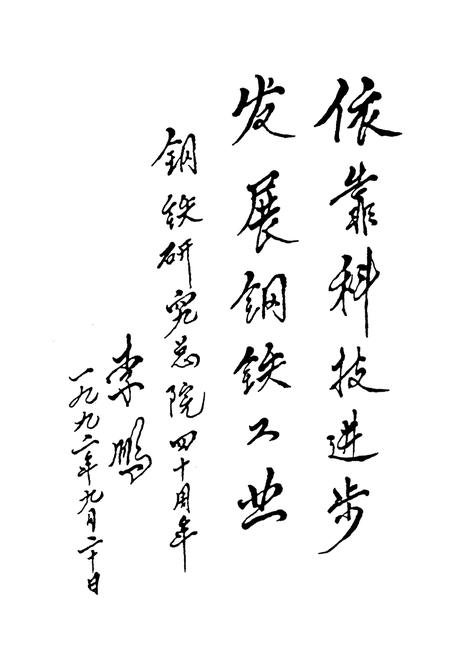 依靠科技进步
发展钢铁工业
钢铁研究总院四十周年
李鹏
一九九二年九月二十日